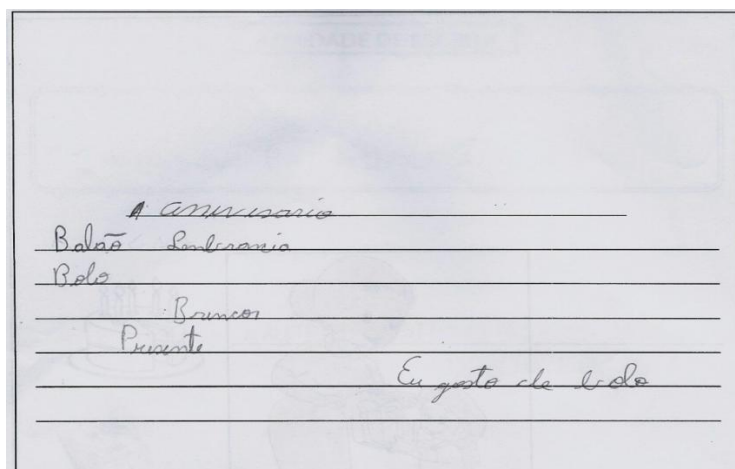 anivesario
Balão Lembrania
Bolo
Brincar
Presente
Eu gosto de bolo